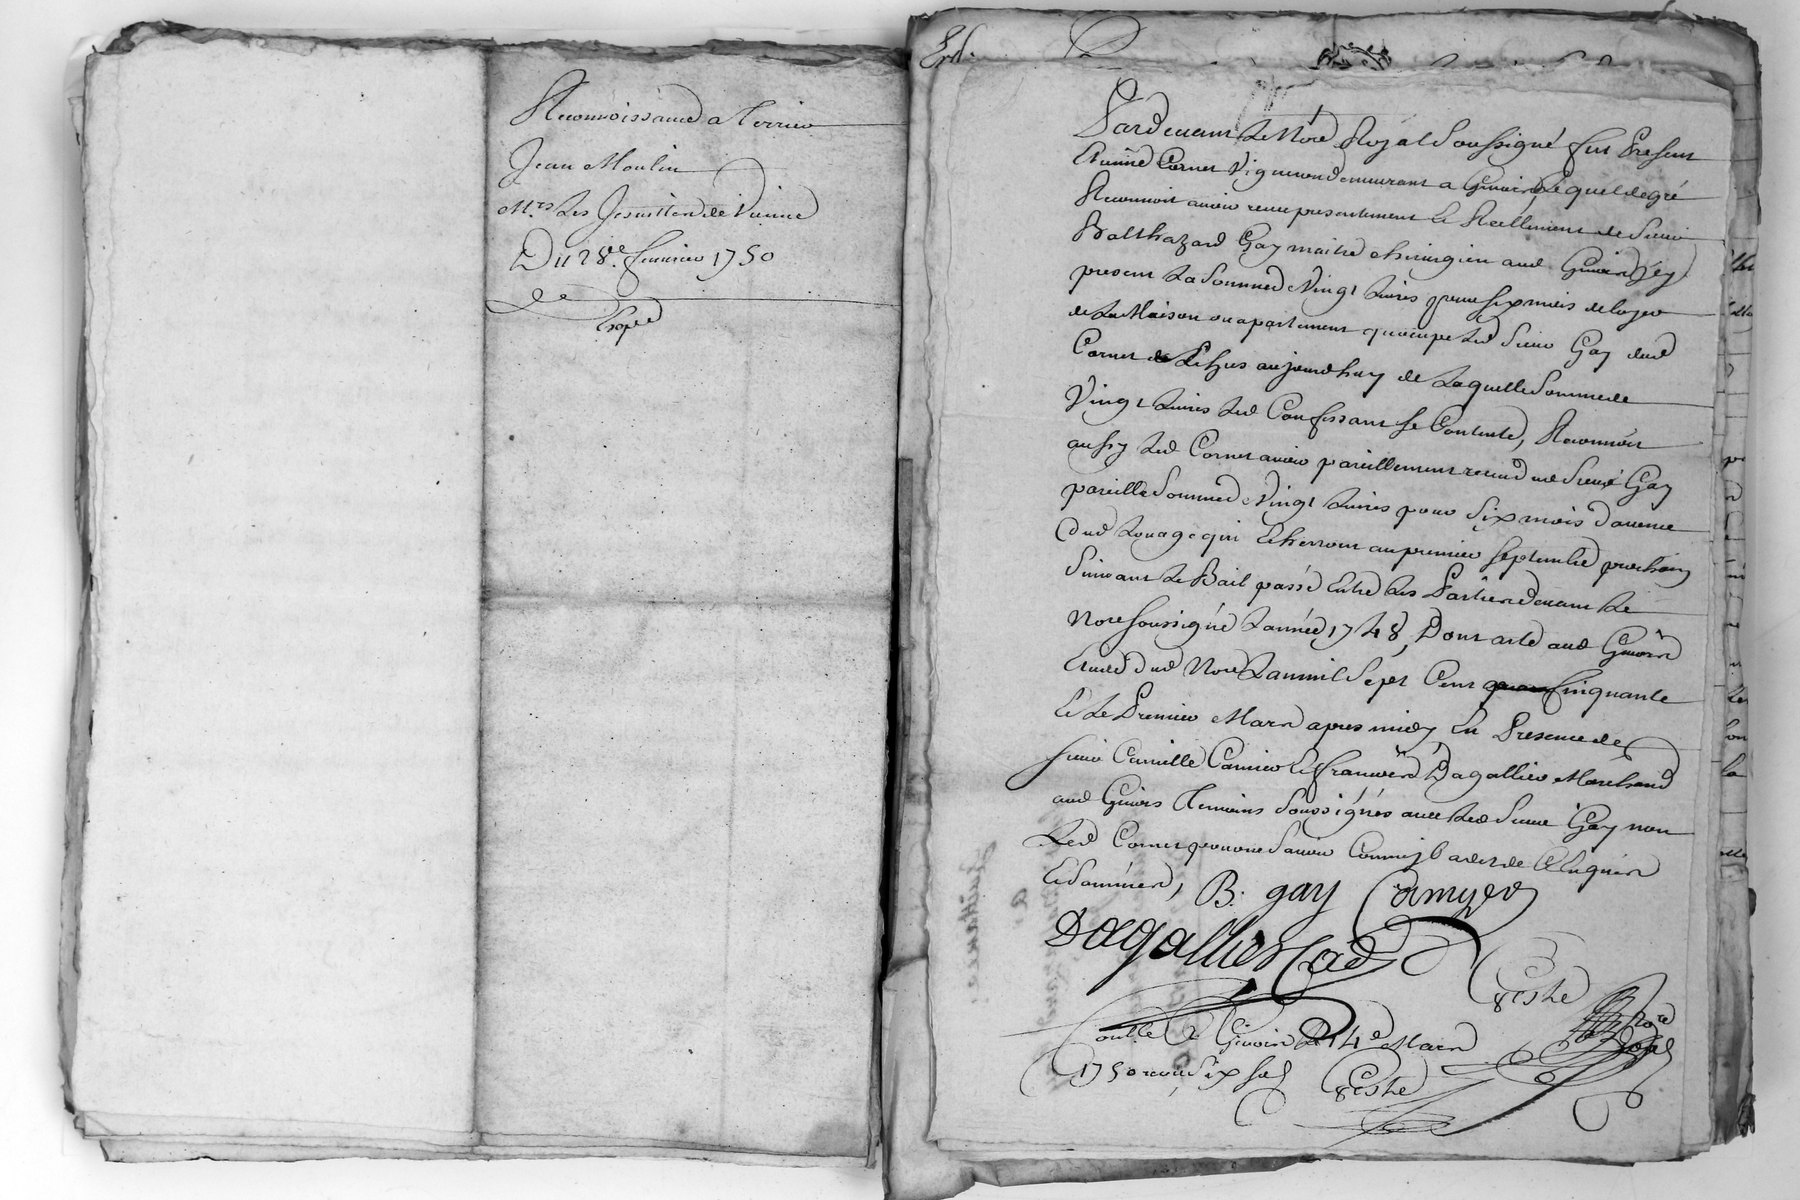 Reconnoissance a Terrier
Jean Moulin
Mrs Les Jesuittes de Vienne
Du 28e fevrier 1750
Expeé
Pardevant Le Nore Royal Soussigné fut Present
Etienne Cornet Vigneron demeurant a Givors Lequel de gré
Reconnoit avoir receu presentement et Reellement de Sieur
Balthazard Gay maitre chirurgien aud Givors jcy
present La Somme de Vingt Livres pour six mois de loyer
de La Maison ou apartement qu'occupe Led Sieur Gay dud
Cornet Echus aujourdhuy de Laquelle Somme de
Vingt Livres Led Confessant se Contente, Reconnoit
aussy Led Cornet avoir pareillement receu dud Sieur Gay
pareille Somme de Vingt Livres pour Six mois d'avence
dud Louage qui Echerront au premier septembre prochain
Suivant Le Bail passé Entre Les Parties devant Le
Nore soussigné L'année 1748, Dont acte aud Givors
Etude dud Nore L'an mil Sept Cent Cinquante
Et Le Premier Mars apres midy En Presence de
sieur Camille Camier Et François Dagallier Marchand
aud Givors Temoins Soussignés avec Led Sieur Gay non
Led Cornet pour ne Sçavoir de Ce Enquis
Et Sommés,
B. gay Camyer
Dagallier
Teste
Nore
Royal
Conlle a Givors Le 14e Mars
1750 receu Six Sols Teste